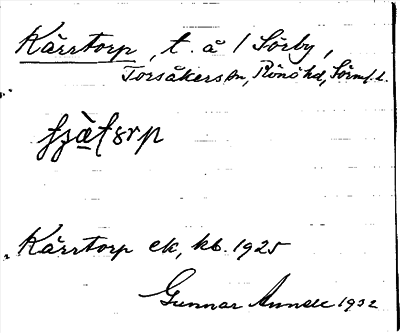 Kärrtorp, t. å / Sörby,
Torsåkers sn, Rönö hd, Sörml. l.
Kärrtorp ek, kb. 1925
Gunnar 1932